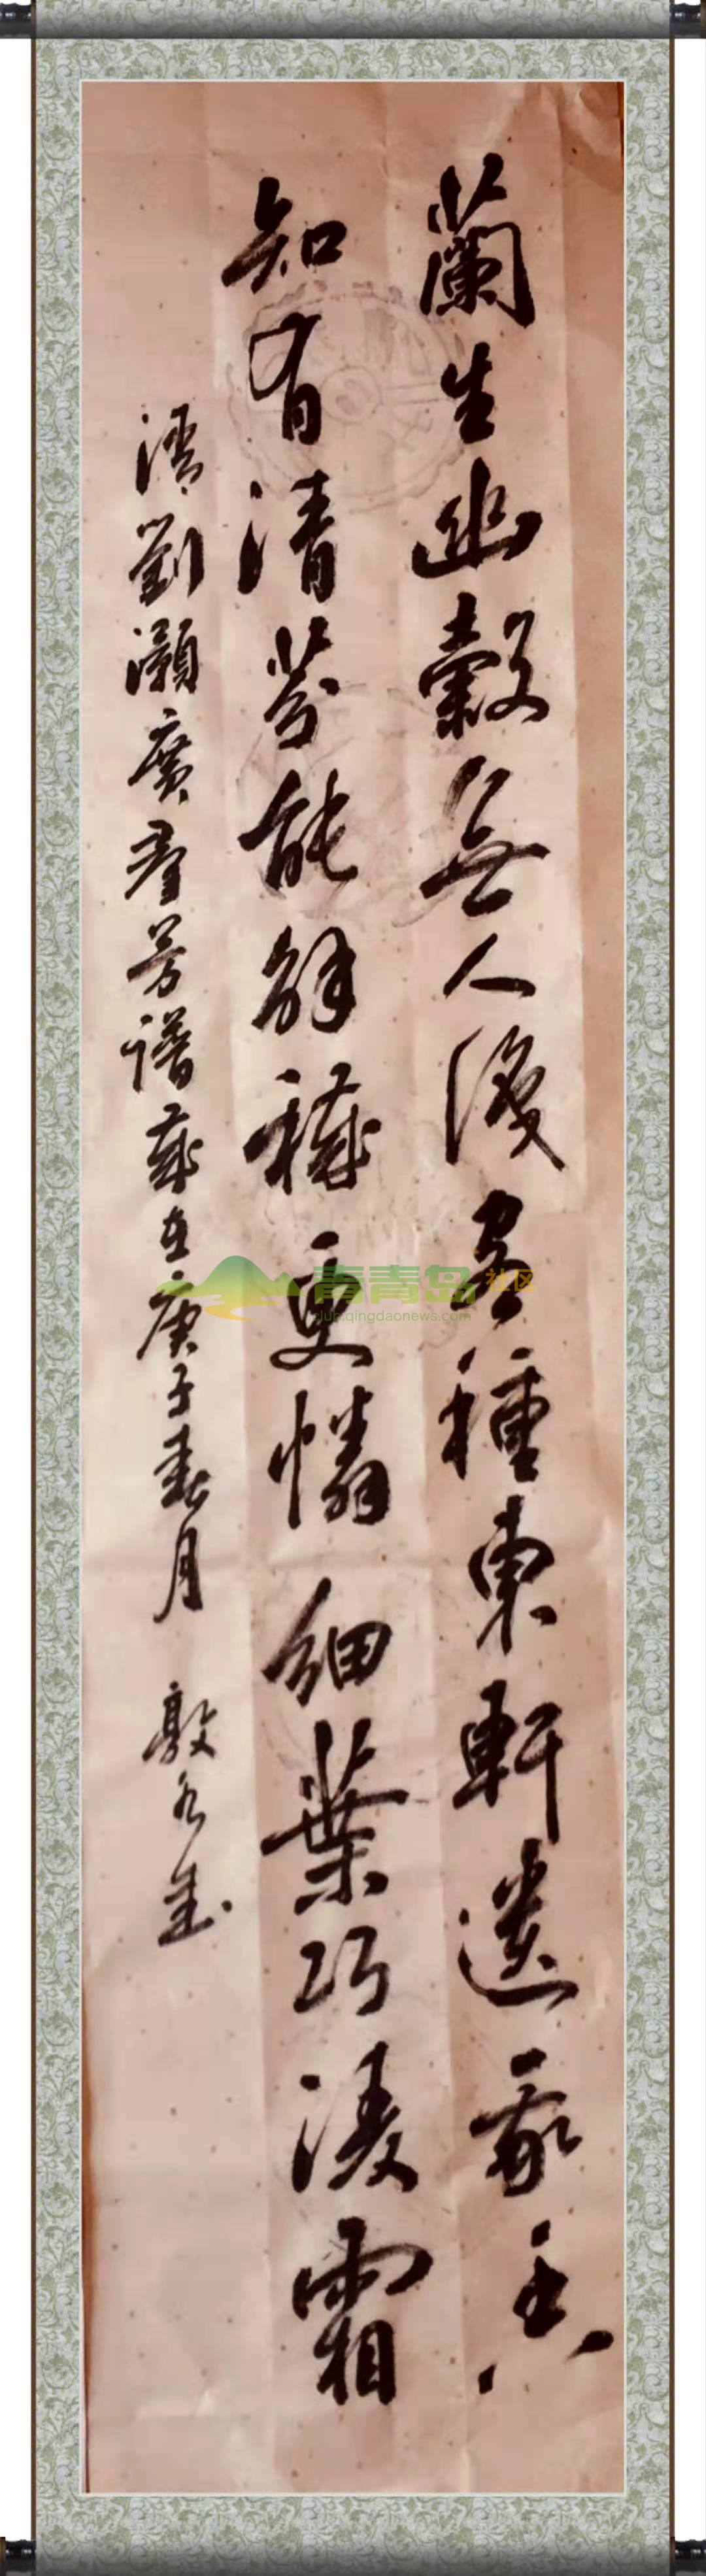 蘭生幽穀無人識客種東軒遺我香
知有清芬能解穢更憐細葉巧淩霜
清劉灝廣羣芳譜歲在庚子春月 敦書
青青岛社区
club.qingdaonews.com